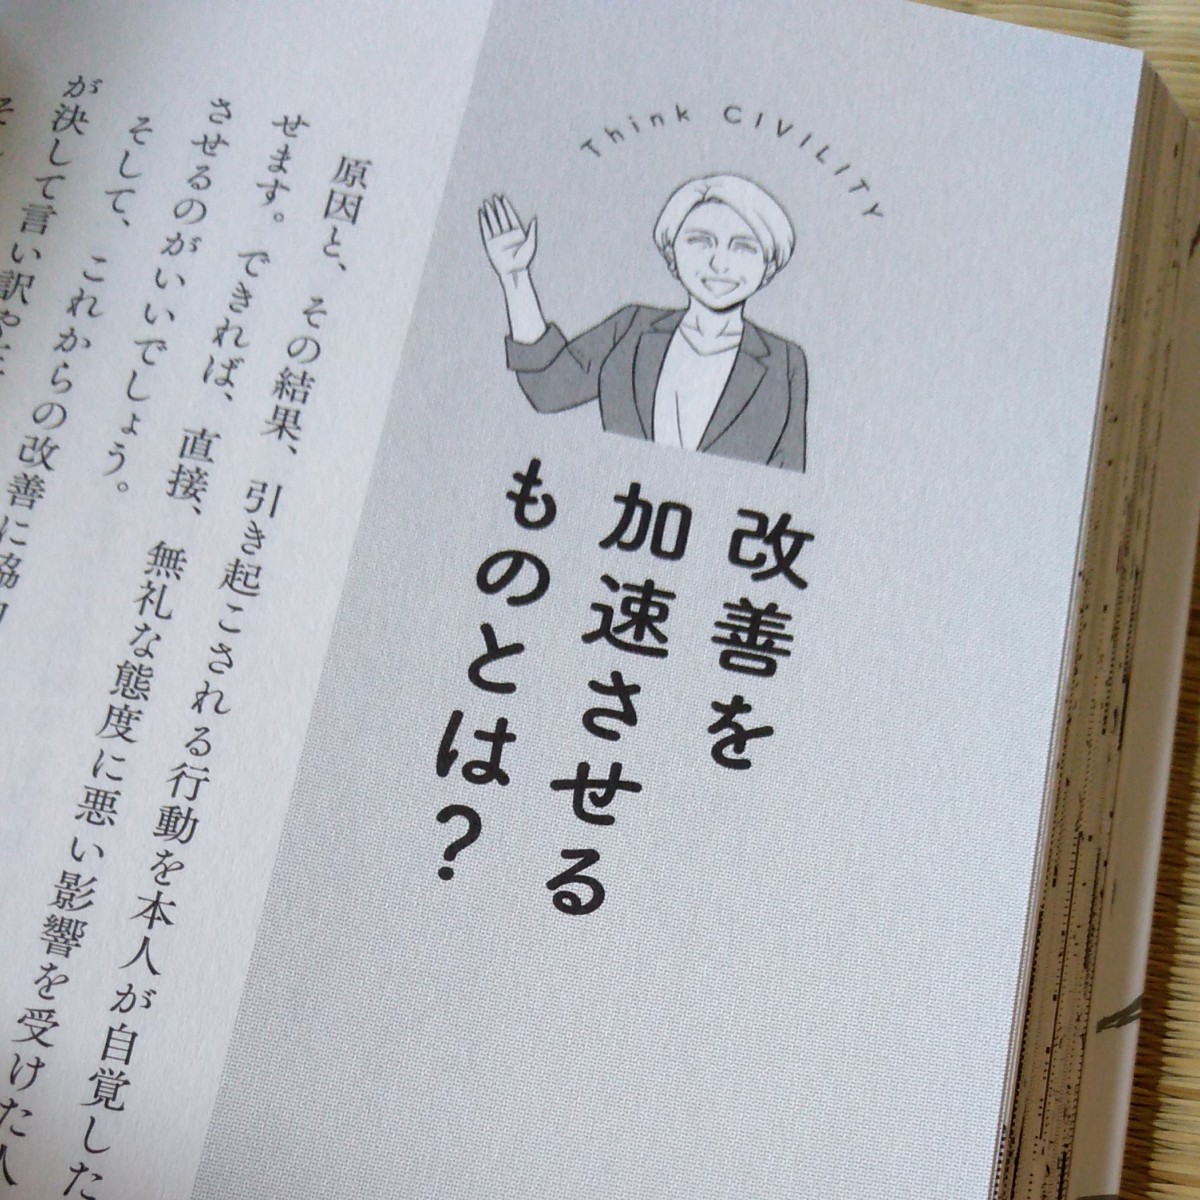 Think CIVILITY
改善を
加速させる
ものとは？
原因と、その結果、引き起こされる行動を本人が自覚した
せます。できれば、直接、無礼な態度に悪い影響を受けた人
させるのがいいでしょう。
そして、これからの改善に協
が決して言い訳や